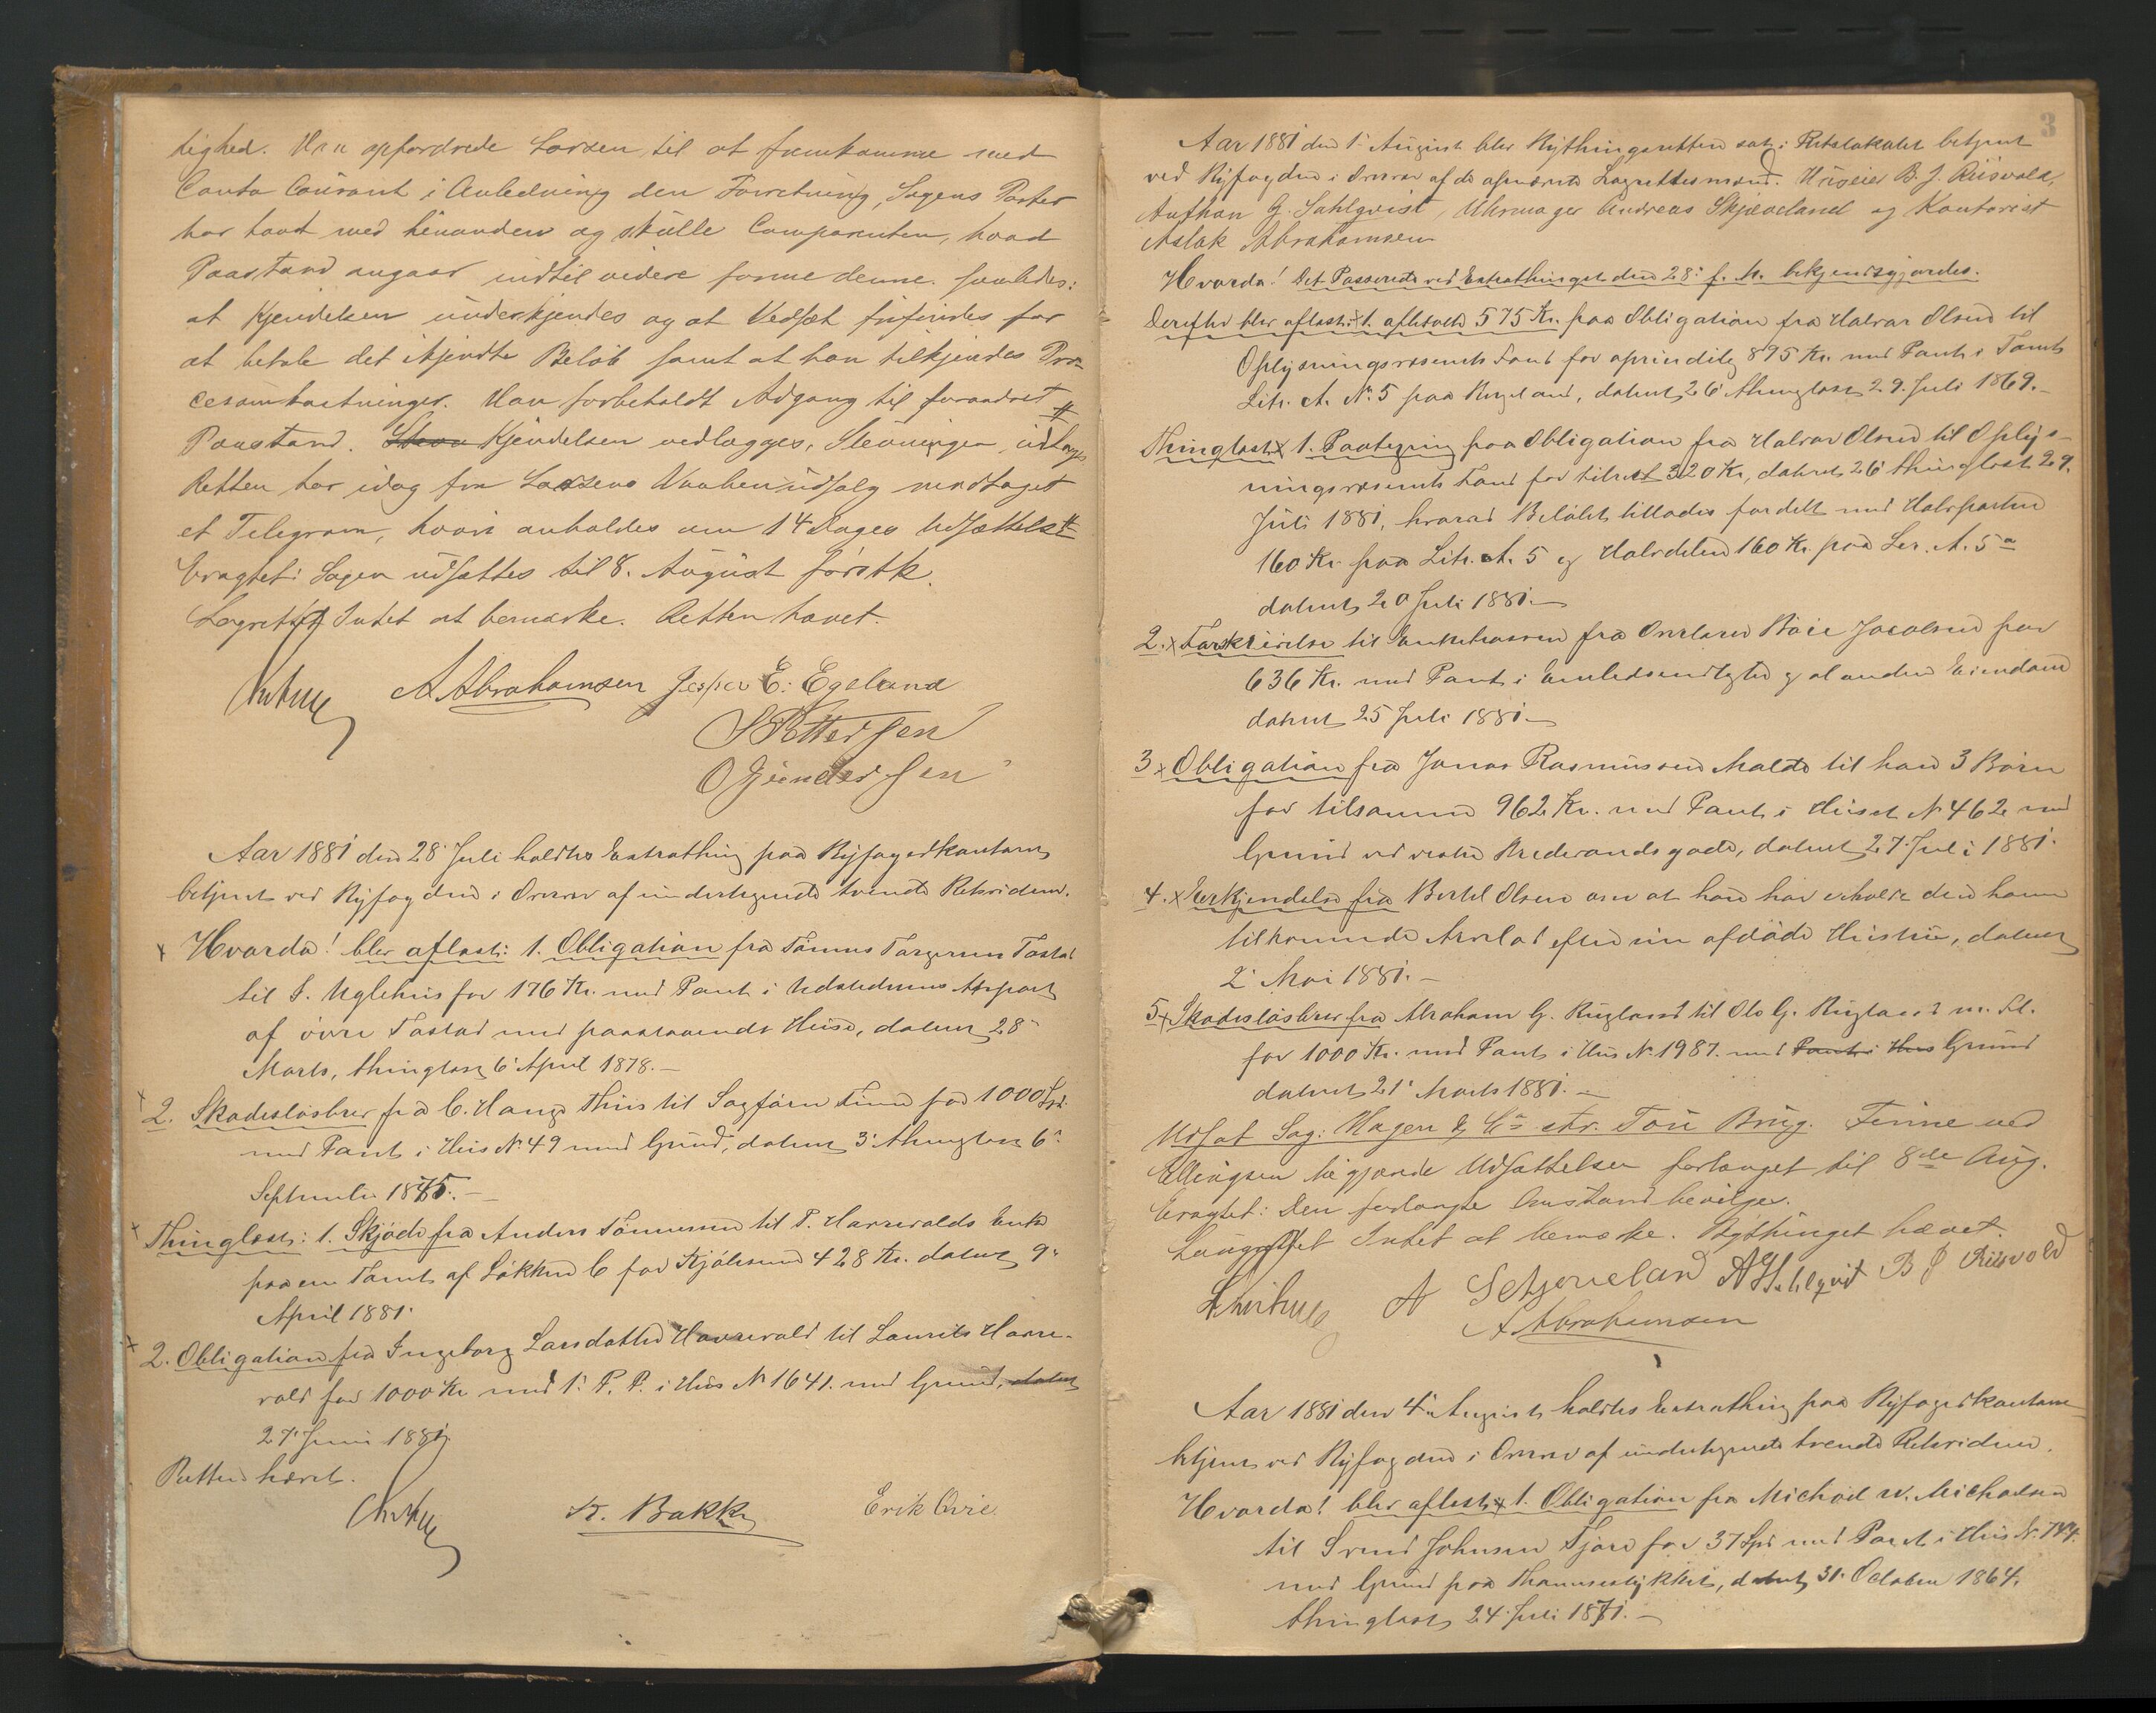 tighed. Man opfordrede Larsen til at fremkomme med
Conto Courant i Anledning den Forretning, Sagens Parter
har havt med hinanden og skulle Comparenten, hvad
Paastand angaar indtil videre forme denne saaledes:
at Kjendelsen underkjendes og at Vedsat frifindes for
at betale det ikjendte Beløb samt at han tilkjendes Pro-
cesomkostninger. Man forbeholdt Adgang til forandret
Paastand. Kjendelsen vedlægges, Stevningen
Retten har idag fra Larsens Vaabenudsalg modtaget
et Telegram, hvori anholdes om 14 Dages Udsættelse
Eragtet: Sagen udsættes til 8. August førstk.
Lagrettet Intet at bemærke. Retten hævet.
A Abrahamsen Jesper E. Egeland
S Pettersen
O Gundersen
Aar 1881 den 28 Juli holdtes Extrathing paa Byfogedkontoret
betjent ved Byfogden i Overvær af undertegnede tvende Retsvidner.
Hvorda! blev aflæst: 1. Obligation fra Tønnes Torgersen Tastad
til S. Uglehus for 176 Kr. med Pant i Udstederens Arvepart
af øvre Tastad med paastaaende Huse, dateret 28
Marts, thinglæst 6 April 1878.
2. Skadesløsbrev fra C. Hauge Thiis til Sagfører Finne for 1000 Spd.
med Pant i Hus No 49 med Grund, dateret 3 thinglæst 6
September 1875.
Thinglæst: 1. Skjøde fra Anders Tønnesen til T. Harrevolds Enke
paa en Tomt af Løkken C for Kjøbesum 428 Kr. dateret 9
April 1881.
2. Obligation fra Ingeborg Larsdatter Harrevold til Laurits Harre-
vold for 1000 Kr med 1. P. P. i Hus No 1641. med Grund, dateret
27 Juni 1881.
Retten hævet.
Bakke Erik Qvie
3
Aar 1881 den 1 August blev Bythingsretten sat i Retslokalet betjent
ved Byfogden i Overvær af de opnævnte Lagrettesmænd: Huseier B. J. Riisvold,
Anthon G. Sahlqvist, Uhrmager Andreas Skjæveland og Kontorist
Aslak Abrahamsen
Hvorda! Det Passerede ved Extrathinget den 28 f. M. bekjendtgjordes.
Derefter blev aflæst: 1. afbetalt 575 Kr. paa Obligation fra Halvor Olsen til
Oplysningsvæsenets Fond for oprindelig 895 Kr. med Pant i Tomt
Litr. A. No 5 paa Rugeland, dateret 26 thinglæst 29. Juli 1869.
Thinglæst 1. Paategning paa Obligation fra Halvor Olsen til Oplys-
ningsvæsenets Fond for tilrest 320 Kr, dateret 26 thinglæst 29.
Juli 1881, hvorved Beløbet tillades fordelt med Halvparten
160 Kr. paa Litr. A. 5 og Halvdelen 160 Kr. paa Litr. A. 5 a
dateret 20 Juli 1881.
2. Forskrivelse til Enkekassen fra Overlærer Boie Jacobsen for
636 Kr. med Pant i Embedsindtægter og al anden Eiendom
dateret 25 Juli 1881
3 Obligation fra Jonas Rasmussen Malde til hans 3 Børn
for tilsammen 962 Kr. med Pant i Huset No 462 med
Grund ved vestre gade, dateret 27. Juli 1881.
4. Erkjendelse fra Bertel Olsen om at han har erholdt den ham
tilkommende Arvelod efter sin afdøde Hustru, dateret
2 Mai 1881.
5 Skadesløsbrev fra Abraham G. Rugland til Ole G. Rugland m. Fl.
for 1000 Kr. med Pant i Hus No 1987. med Pant i Hus Grund
dateret 21 Marts 1881.
Udsat Sag: Hagen & Co ctr. Tou Brug. Finne ved
Ellingsen begjærede Udsættelse forlænget til 8de Aug.
Eragtet: Den forlangte Anstand bevilges.
Laugrettet Intet at bemærke. Bythinget hævet.
A Skjæveland A G Sahlqvist B J Riisvold
A Abrahamsen
Aar 1881 den 4 August holdtes Extrathing paa Byfogedkontoret
betjent ved Byfogden i Overvær af undertegnede tvende Retsvidner.
Hvorda! blev aflæst: 1. Obligation fra Michael W. Michelsen
til Svend Johnsen Tjøre for 37 Spd med Pant i Hus No. 744.
med Grund paa , dateret 31. October 1864.
thinglæst 24. Juli 1871.